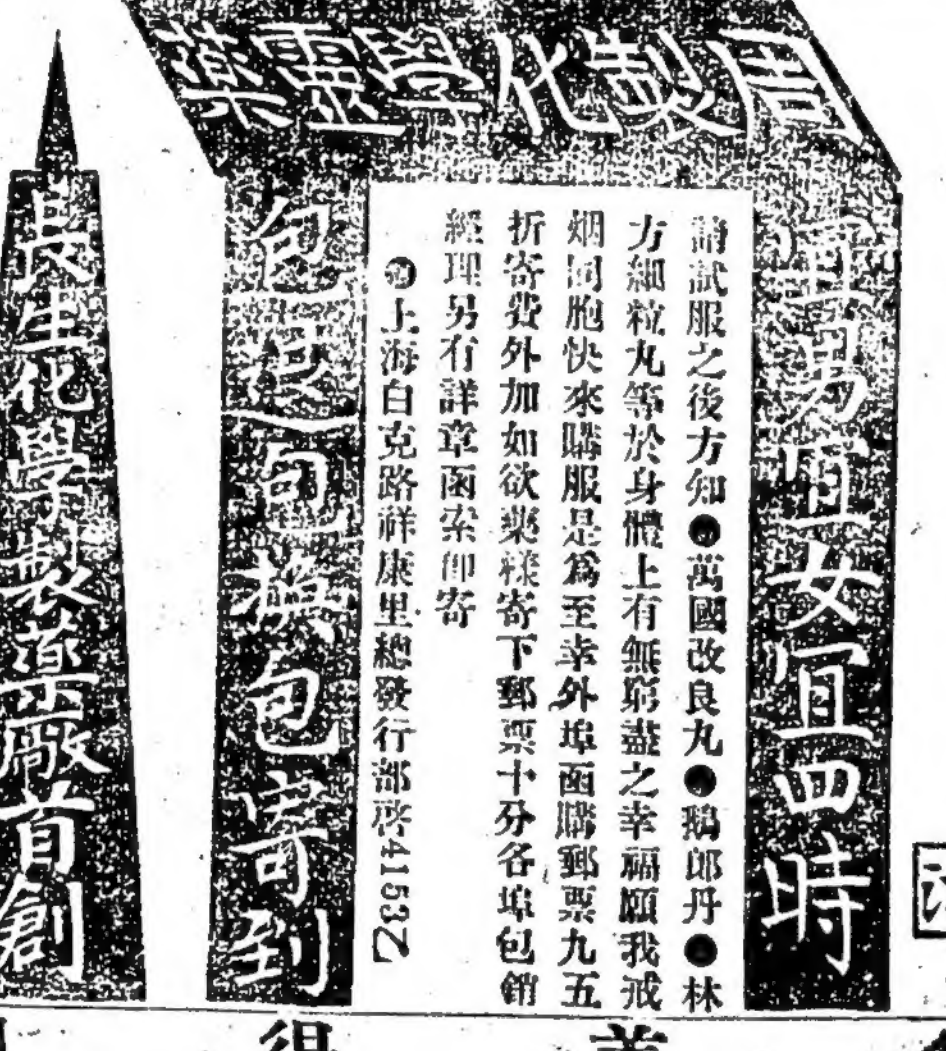 周製化學靈藥
宜男宜女宜四時
請試服之後方知●萬國改良丸●鵝郎丹●林
方細粒丸等於身體上有無窮盡之幸福願我戒
烟同胞快來購服是爲至幸外埠函購郵票九五
折寄費外加如欲藥樣寄下郵票十分各埠包銷
經理另有詳章函索卽寄
●上海白克路祥康里總發行部啓41532乙
包退包換包寄到
長生化學製藥廠首創